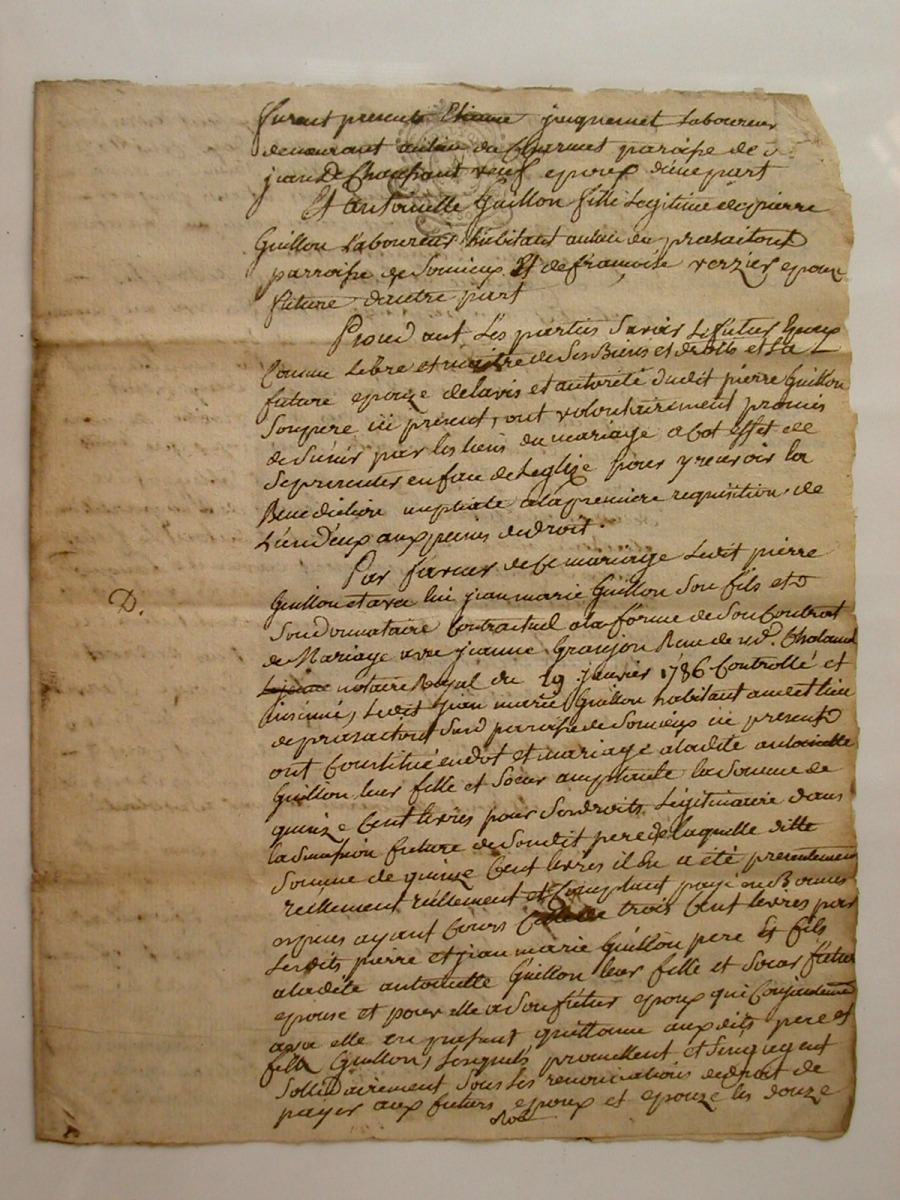 furent presents Etienne juquemet Laboureur
demeurant au lieu du Charmet paroisse de
jean De Chaussant veuf epoux d'une part
Et antoinette Guillon fille Legitime de pierre
Guillon Laboureur habitant au lieu du prasaitout
parroisse de Soucieux Et de francoise verzier epouse
future d'autre part
Proced ant Les parties Savoir Le futur Epoux
Comme Libre et maitre de Ses Biens et droits et La
future epouze de lavis et autorité dudit pierre Guillon
Son pere ici present, ont volontairement promis
de S'unir par les liens du mariage a Cet effet de
Se presenter en face de Leglize pour y recevoir la
Benediction nuptiale a la premiere requisition de
L'un d'eux aux peines de droit.
Par faveur de Ce mariage Ledit pierre
D.
Guillon et avec lui jean marie Guillon Son fils et
Son Donnataire Contractuel a la forme de Son Contrat
de Mariage avec jeanne Granjon Recu de Chaland
notaire Royal du 19 janvier 1786 Controllé et
insinué, Ledit jean marie Guillon habitant audit lieu
de prasaitout Susd paroisse de Soucieux ici present
ont Constitué en dot et mariage a ladite antoinette
Guillon leur fille et Soeur acceptante la Somme de
quinze Cent livres pour Ses droits Legitimaire dans
la Succession future de Son dit pere de laquelle ditte
Somme de quinze Cent livres il En a été presentement
reellement réellement et Comptant payé en Bonnes
especes ayant Cours trois Cent livres par
Lesdits pierre et jean marie Guillon pere Et fils
a ladite antoinette Guillon leur fille et Soeur future
epouse et pour elle a Son futur epoux qui Conjointement
avec elle en passent quittance auxdits pere et
fils Guillon, Lesquels promettent et S'engagent
Sollidairement Sous Les renonciations de droit de
payer aux futurs epoux et epouze les douze